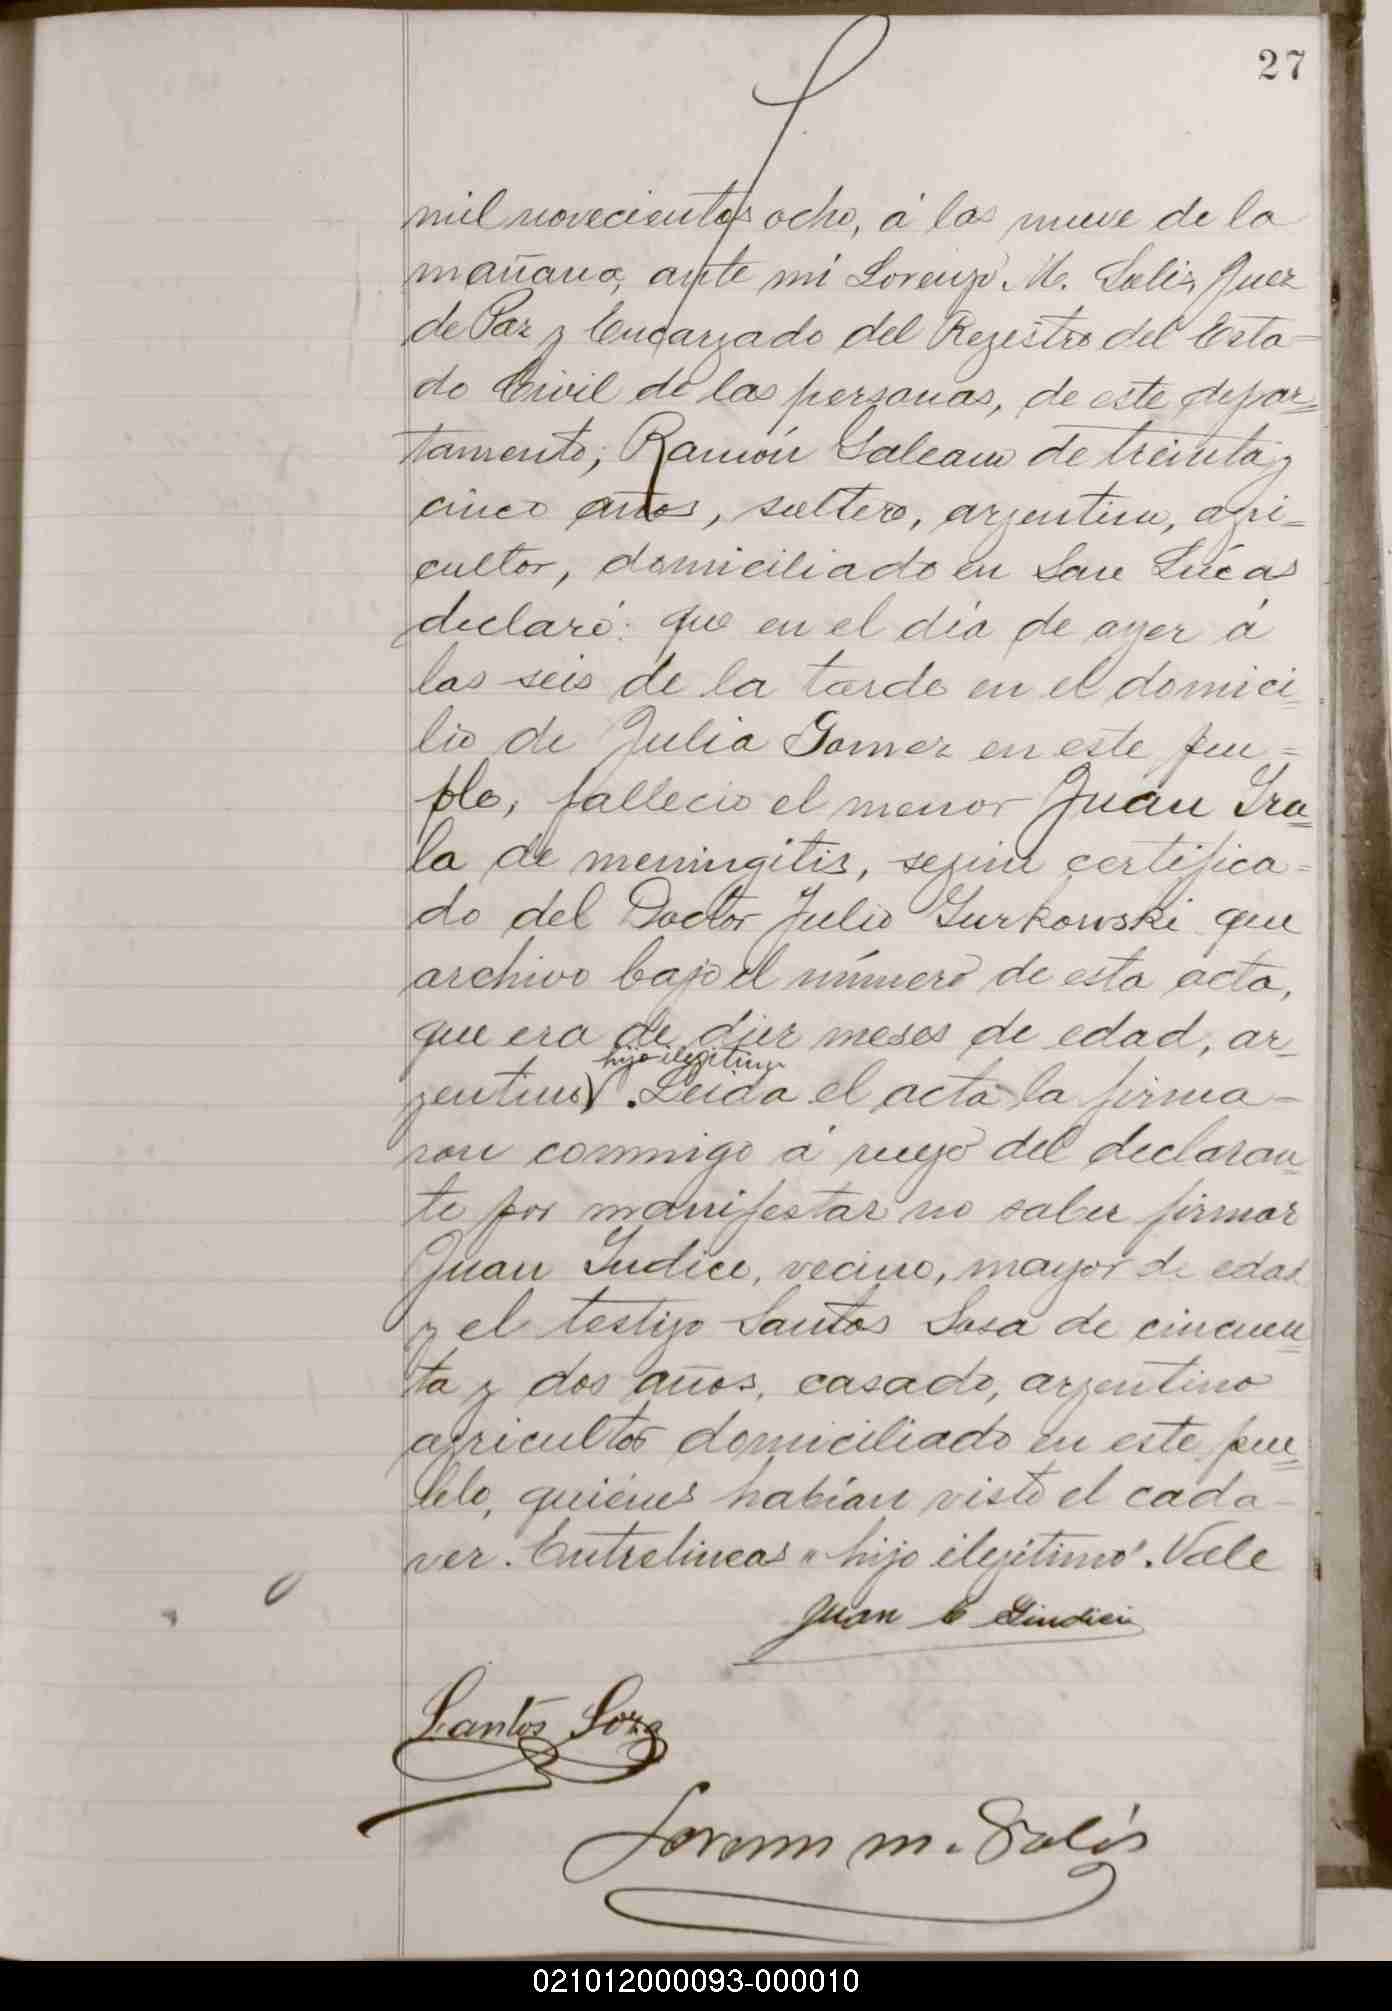 27
mil novecientos ocho, á las nueve de la
mañana, ante mi Lorenzo M. Solis, Juez
de Paz y Encargado del Registro del Esta-
do Civil de las personas, de este depar=
tamento; Ramón Galeano de treinta y
cinco años, soltero, argentino, agri=
cultor, domiciliado en San Lúcas
declaró: que en el día de ayer á
las seis de la tarde en el domici=
lio de Julia Gomez en este pue=
blo, fallecio el menor Juan Ira=
la de meningitis, segun certifica=
do del Doctor Julio Gurkowski que
archivo bajo el número de esta acta,
que era de diez meses de edad, ar-
hijo ilegitimo
gentino. Leida el acta la firma-
ron conmigo á ruego del declaran=
te por manifestar no saber firmar
Juan Iudice, vecino, mayor de edad
y el testigo Santos Sosa de cincuen=
ta y dos años, casado, argentino
agricultor domiciliado en este pue=
blo, quiénes habían visto el cada-
ver. Entrelineas "hijo ilegítimo". Vale
Juan C Giudici
Santos Soza
Lorenzo M. Solís
021012000093-000010